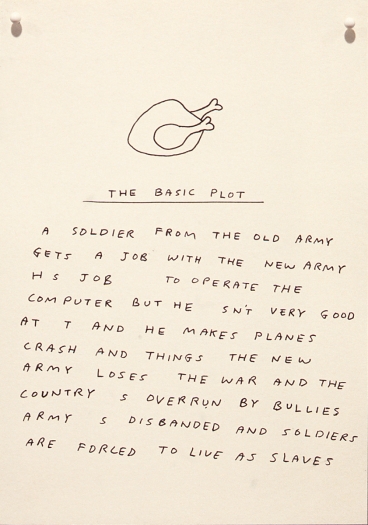 THE BASIC PLOT
A SOLDIER FROM THE OLD ARMY
GETS A JOB WITH THE NEW ARMY
H S JOB TO OPERATE THE
COMPUTER BUT HE SN'T VERY GOOD
AT T AND HE MAKES PLANES
CRASH AND THINGS THE NEW
ARMY LOSES THE WAR AND THE
COUNTRY S OVERRUN BY BULLIES
ARMY S DISBANDED AND SOLDIERS
ARE FORCED TO LIVE AS SLAVES